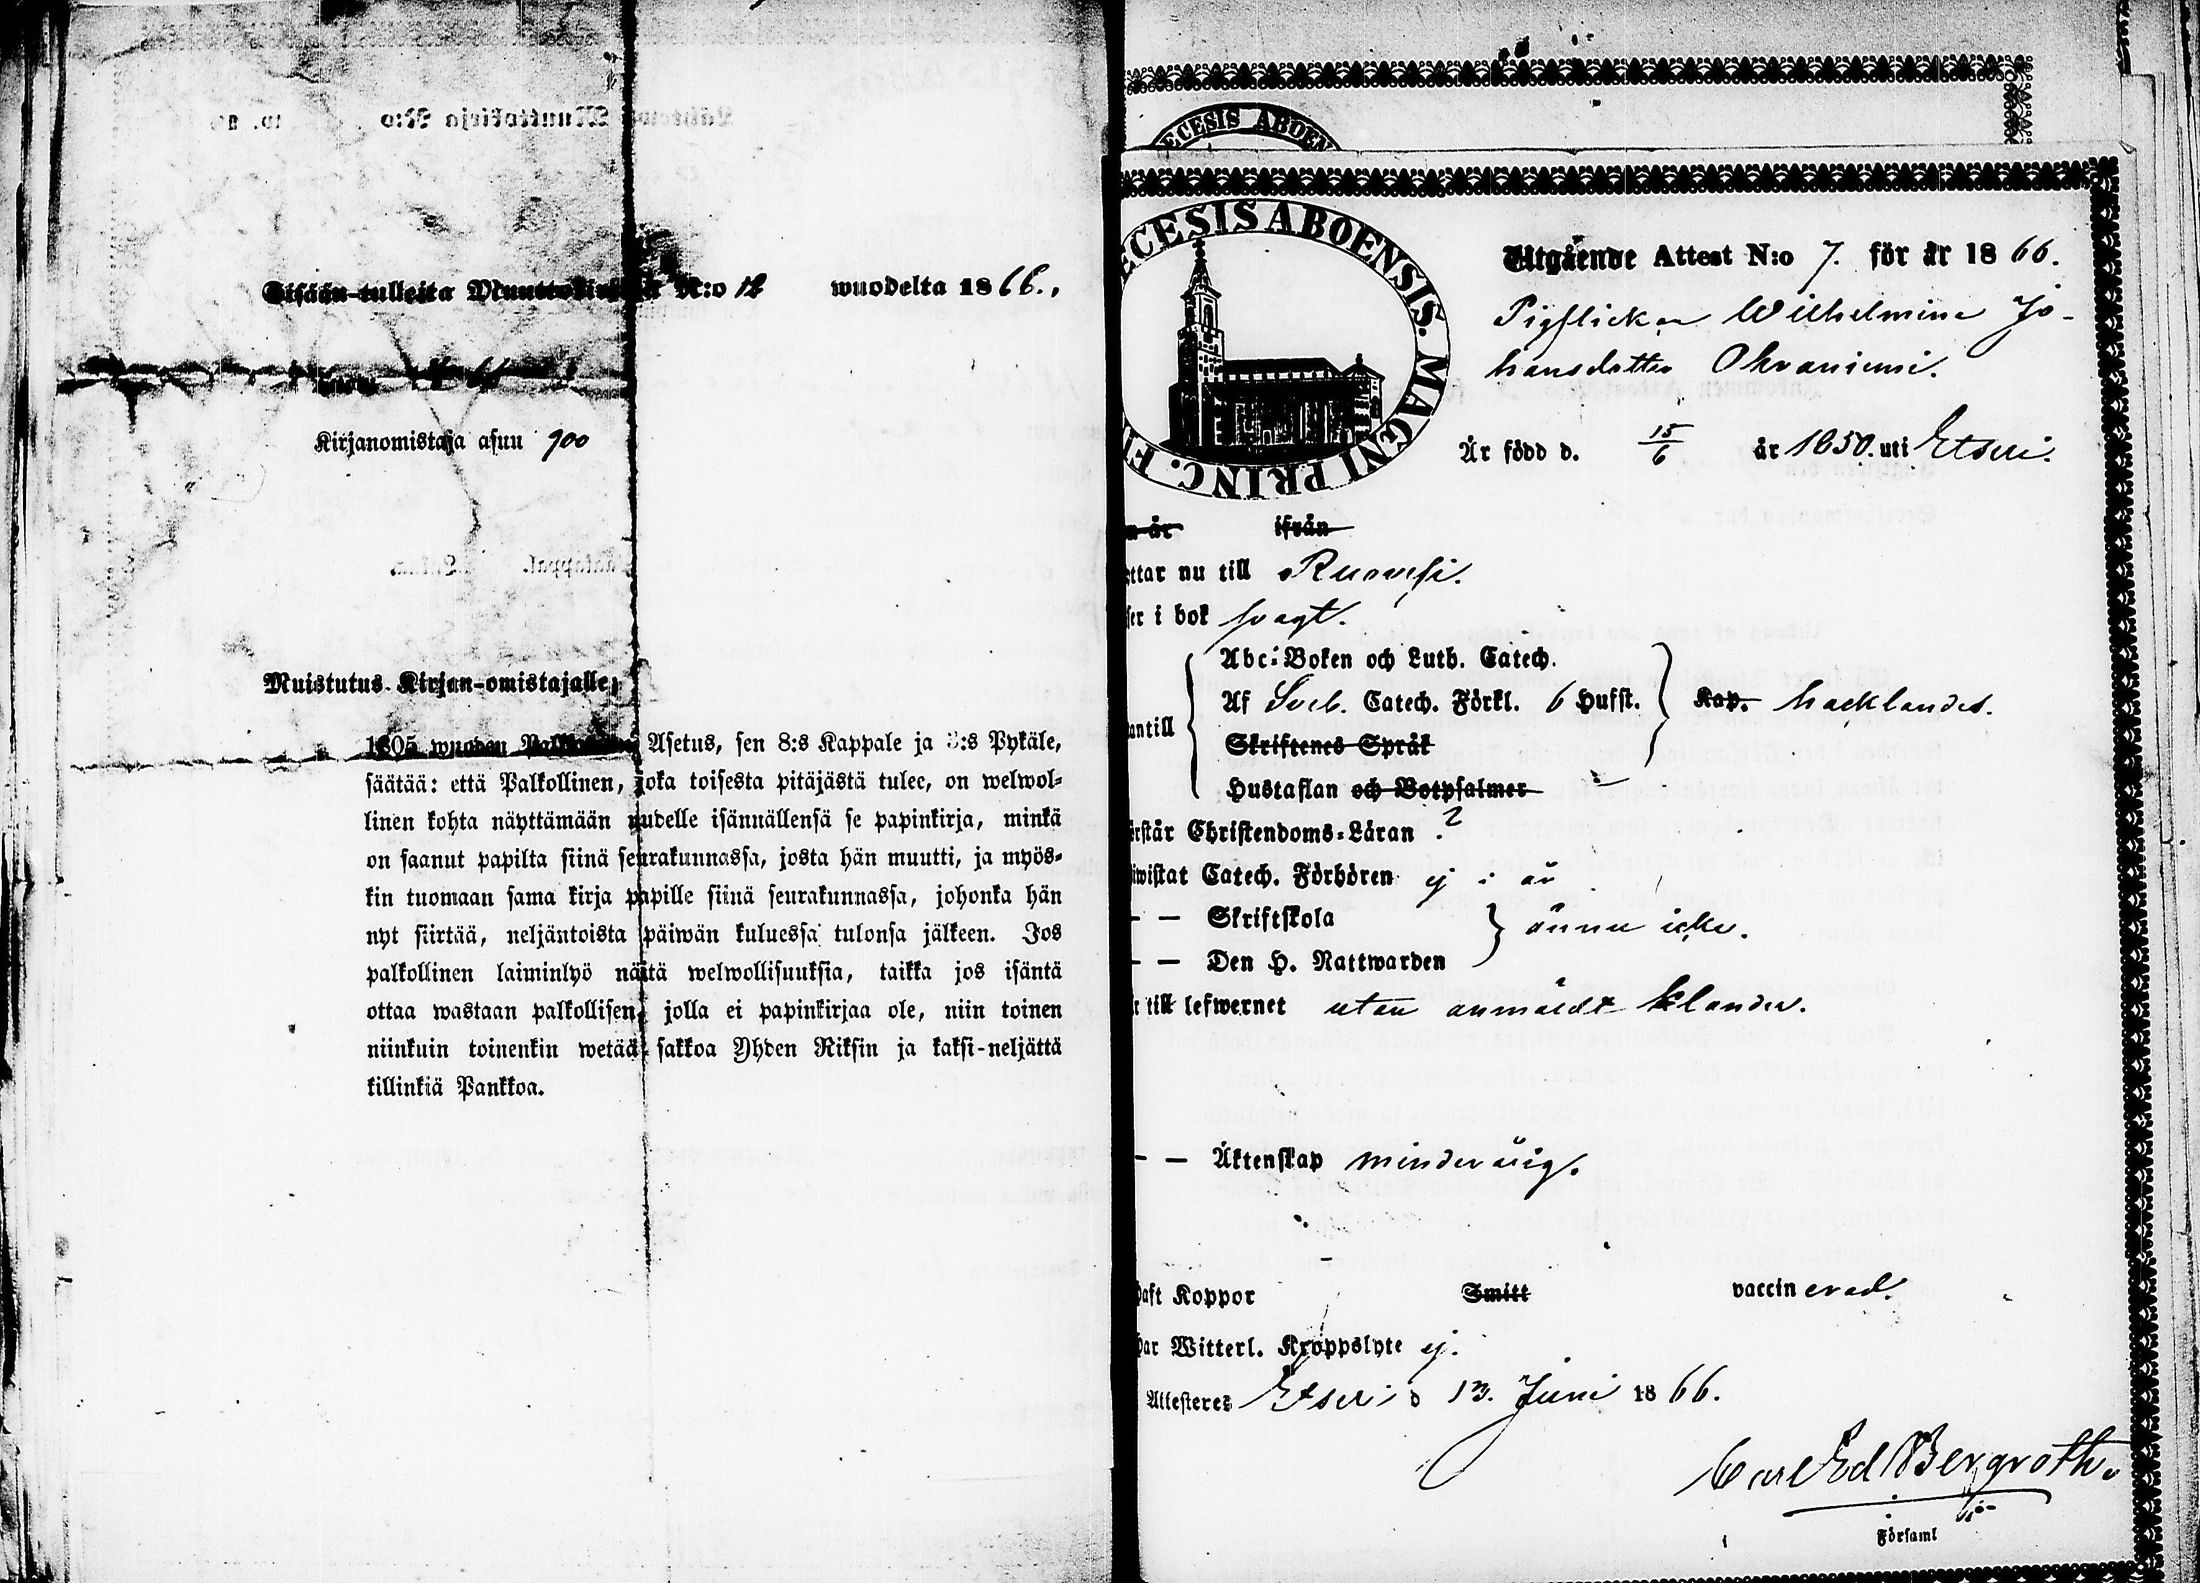 Sisään-tulleita Muuttokirjoja N:o 12 wuodelta 1866.,
Kirjanomistaja asuu 900
Muistutus Kirjan-omistajalle,
1805 wuoden Asetus, sen 8:s Kappale ja 3:s Pykäle,
säätää: että Palkollinen, joka toisesta pitäjästä tulee, on welwol-
linen kohta näyttämään uudelle isännällensä se papinkirja, minkä
on saanut papilta siinä seurakunnassa, josta hän muutti, ja myös-
kin tuomaan sama kirja papille siinä seurakunnassa, johonka hän
nyt siirtää, neljäntoista päiwän kuluessa tulonsa jälkeen. Jos
palkollinen laiminlyö näitä welwollisuuksia, taikka jos isäntä
ottaa wastaan palkollisen, jolla ei papinkirjaa ole, niin toinen
niinkuin toinenkin wetää sakkoa Yhden Riksin ja kaksi-neljättä
killinkiä Pankkoa.
ECESIS ABOEN
ECESIS ABOENSIS. MAGNI PRINC. FI
Utgående Attest N:o 7. för år 1866.
Pigflickan Wilhelmina Jo-
hansdotter Ohraniemi.
Är född d. 15/6 år 1850. uti Etseri.
n år ifrån
ttar nu till Ruovesi.
ser i bok svagt.
antill
Abc-Boken och Luth. Catech.
Af Sveb. Catech. Förkl. 6 Hufst. Kap. hacklandes.
Skriftenes Språk
Hustaflan och Botpsalmer
örstår Christendoms-Läran ?
iwistat Catech. Förhören ej i år
— — Skriftskola
ännu icke.
— — Den H. Nattwarden
r till lefwernet utan anmäldt klander.
— — Äktenskap minderårig.
haft Koppor Smitt vaccinerad.
har Witterl. Kroppslyte ej.
Attesteres Etseri d 13. Juni 1866.
Carl Ed Bergroth.
Församl